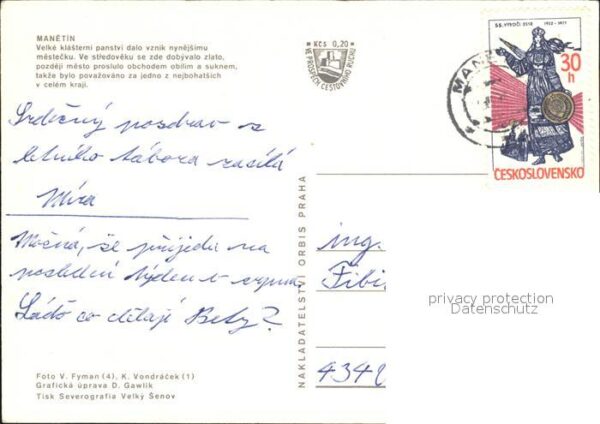 MANĚTÍN
Velké klášterní panství dalo vznik nynějšímu
městečku. Ve středověku se zde dobývalo zlato,
později město proslulo obchodem obilím a suknem,
takže bylo považováno za jedno z nejbohatších
v celém kraji.
Kčs 0,20
VE PROSPĚCH CESTOVNÍHO RUCHU
55. VÝROČÍ
30
h
ČESKOSLOVENSKO
Srdečný pozdrav z
letního tábora zasílá
Míra
Možná, že přijedu na
poslední týden v srpnu.
Láďo co dělají Betky?
NAKLADATELSTVÍ ORBIS PRAHA
ing.
Fibi
privacy protection
Datenschutz
Foto V. Fyman (4), K. Vondráček (1)
Grafická úprava D. Gawlik
Tisk Severografia Velký Šenov